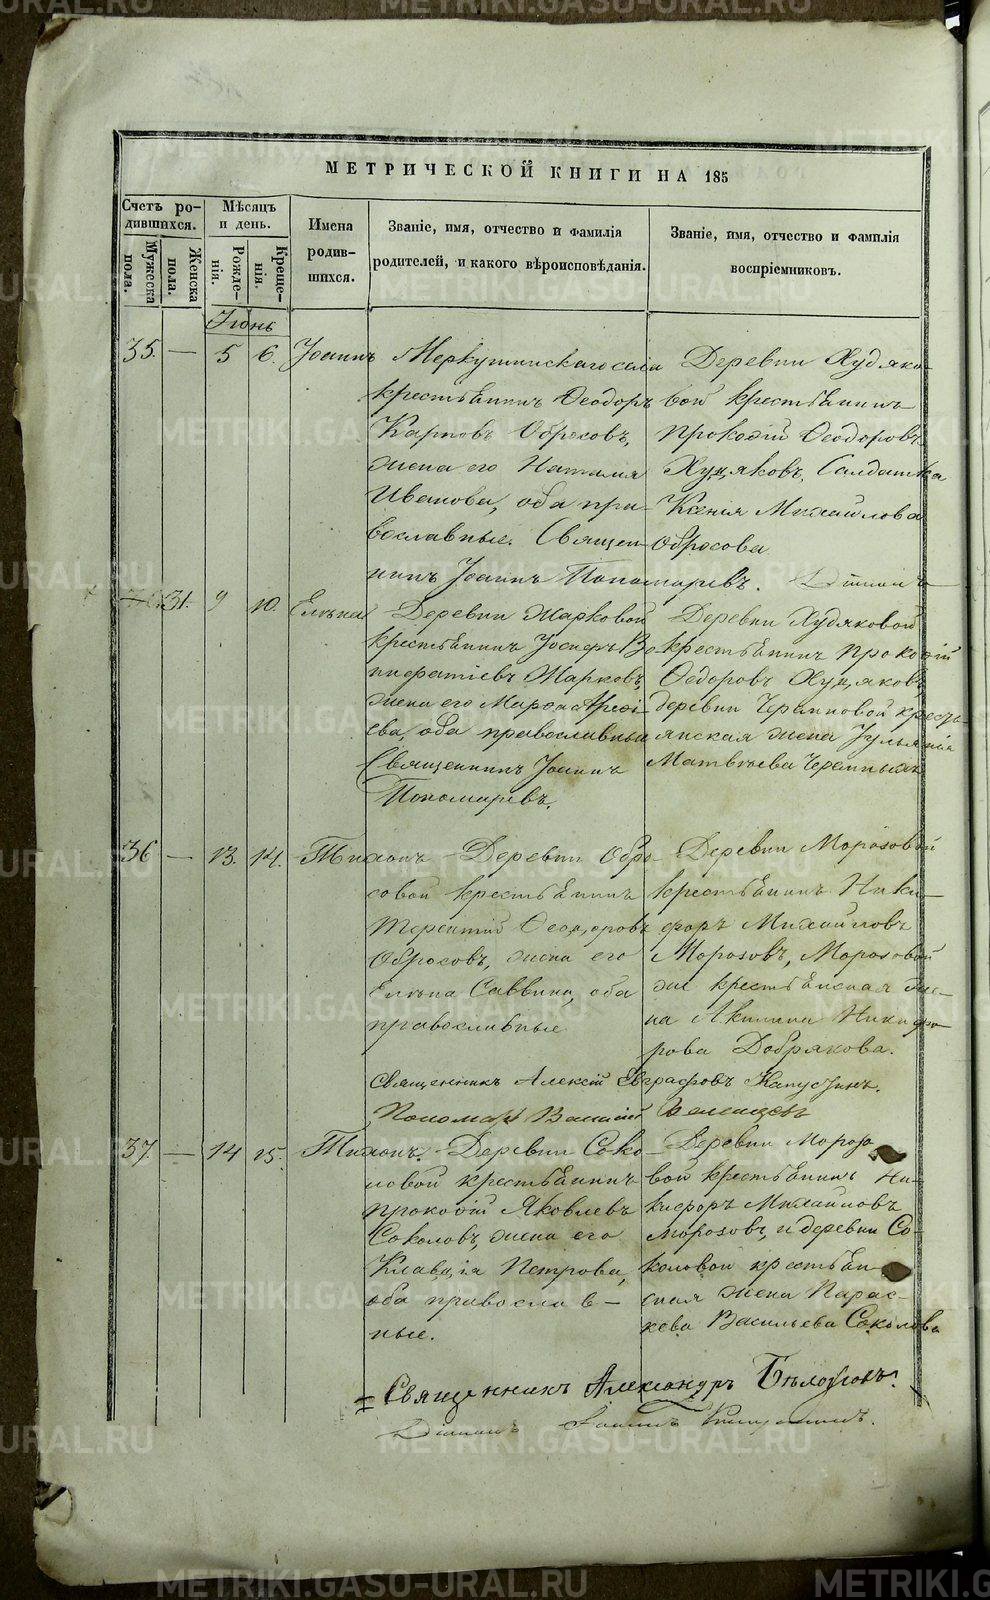 МЕТРИЧЕСКОЙ КНИГИ НА 185
Счетъ ро-
дившихся.
Мужеска пола.
Женска пола.
Мѣсяцъ
и день.
Рожде-
нія.
Креще-
нія.
Имена
родив-
шихся.
Званіе, имя, отчество и фамилія
родителей, и какого вѣроисповѣданія.
Званіе, имя, отчество и фамилія
воспріемниковъ.
Іюнь
35. — 5 6. Іоаннъ
Меркушинскаго села
крестьянинъ Ѳеодоръ
Карповъ Обросовъ,
жена его Наталія
Иванова, оба пра-
вославные. Священ-
никъ Іоаннъ Пономаревъ.
Деревни Худяко-
вой крестьянинъ
Прокопій Ѳеодоровъ
Худяковъ, Салдатка
Ксенія Михайлова
Обросова
31. 9 10. Елена
Деревни Марковой
крестьянинъ Іосифъ Во-
нифатіевъ Марковъ,
жена его Марѳа
ева, оба православные
Священникъ Іоаннъ
Пономаревъ.
Деревни Худяковой
крестьянинъ Прокопій
Ѳедоровъ Худяковъ,
деревни Черемновой кресть-
янская жена Іуліанія
Матвѣева Черемныхъ
36 — 13. 14. Тихонъ
Деревни Обро-
совой крестьянинъ
Терентій Ѳеодоровъ
Обросовъ, жена его
Елена Саввина, оба
православные
Деревни Морозовой
крестьянинъ Ники-
форъ Михайловъ
Морозовъ, Морозовой
же крестьянская же-
на Акилина Никифо-
рова Добрякова.
Священникъ Алексій Евграфовъ Капустинъ.
Пономарь Василій
37. — 14 15. Тихонъ.
Деревни Соко-
ловой крестьянинъ
Прокопій Яковлевъ
Соколовъ, жена его
Клавдія Петрова,
оба православ-
ные.
Деревни Морозо-
вой крестьянинъ Ни-
кифоръ Михайловъ
Морозовъ, и деревни Со-
коловой крестьян-
ская жена Парас-
кева Васильева Соколова
Священникъ Александръ
METRIKI.GASU-URAL.RU